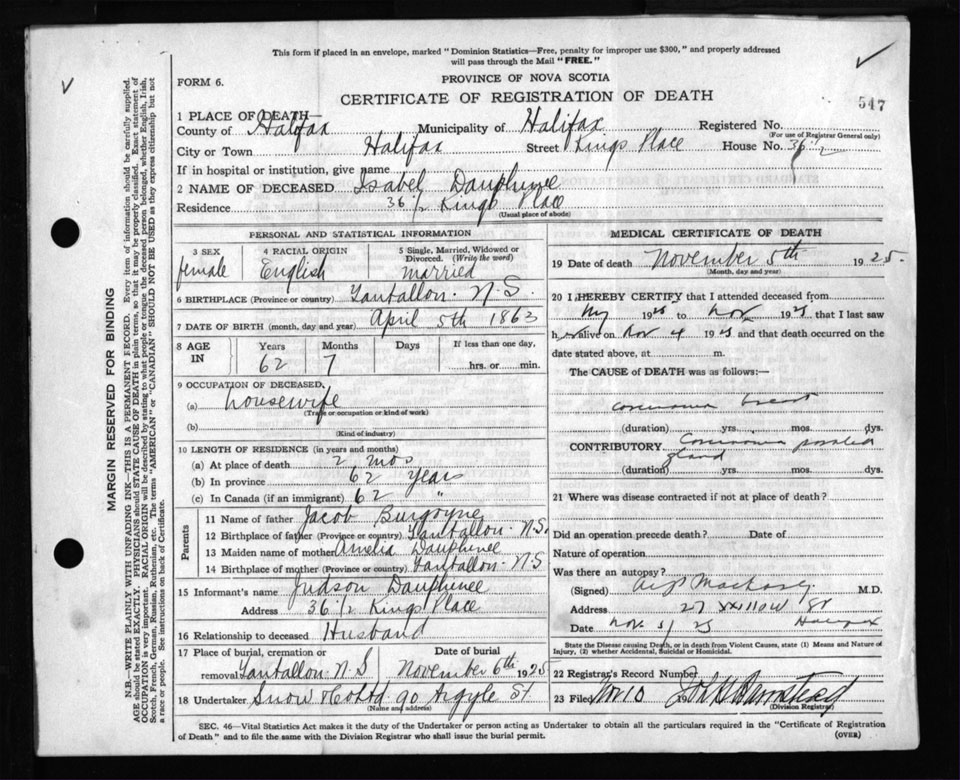 This form if placed in an envelope, marked "Dominion Statistics—Free, penalty for improper use $300," and properly addressed
will pass through the Mail "FREE."
FORM 6.
PROVINCE OF NOVA SCOTIA
CERTIFICATE OF REGISTRATION OF DEATH
547
1 PLACE OF DEATH—
County of Halifax Municipality of Halifax Registered No.
(For use of Registrar General only)
City or Town Halifax Street Kings Place House No. 36 1/2
If in hospital or institution, give name
2 NAME OF DECEASED Isabel Dauphinee
Residence 36 1/2 Kings Place
(Usual place of abode)
PERSONAL AND STATISTICAL INFORMATION
3 SEX
female
4 RACIAL ORIGIN
English
5 Single, Married, Widowed or
Divorced. (Write the word)
married
6 BIRTHPLACE (Province or country) Tantallon. N.S.
7 DATE OF BIRTH (month, day and year) April 5th 1863
8 AGE
IN
Years
62
Months
7
Days
If less than one day,
hrs. or min.
9 OCCUPATION OF DECEASED,
(a) housewife
(Trade or occupation or kind of work)
(b)
(Kind of industry)
10 LENGTH OF RESIDENCE (in years and months)
(a) At place of death 2 mos
(b) In province 62 years
(c) In Canada (if an immigrant) 62 "
Parents
11 Name of father Jacob Burgoyne
12 Birthplace of father (Province or country) Tantallon. N.S.
13 Maiden name of mother Amelia Dauphinee
14 Birthplace of mother (Province or country) Tantallon. N.S
15 Informant's name Judson Dauphinee
Address 36 1/2 Kings Place
16 Relationship to deceased Husband
17 Place of burial, cremation or Date of burial
removal Tantallon N S November 6th 1925
18 Undertaker Snow & Co Ltd 90 Argyle St
(Name and address)
MEDICAL CERTIFICATE OF DEATH
19 Date of death November 5th 1925.
(Month, day and year)
20 I HEREBY CERTIFY that I attended deceased from
1925 to Nov 1925 that I last saw
h alive on Nov 4 1925 and that death occurred on the
date stated above, at m.
The CAUSE of DEATH was as follows:—
Carcinoma breast
(duration) yrs. mos. dys.
CONTRIBUTORY Carcinoma parotid
gland
(duration) yrs. mos. dys.
21 Where was disease contracted if not at place of death?
Did an operation precede death? Date of
Nature of operation
Was there an autopsy?
(Signed) M.D.
Address 27 St
Date Nov. 5/25 Halifax
State the Disease causing Death, or in death from Violent Causes, state (1) Means and Nature of
Injury, (2) whether Accidental, Suicidal or Homicidal.
22 Registrar's Record Number
23 Filed Nov 10 192
(Division Registrar)
SEC. 46—Vital Statistics Act makes it the duty of the Undertaker or person acting as Undertaker to obtain all the particulars required in the "Certificate of Registration
of Death" and to file the same with the Division Registrar who shall issue the burial permit.
(OVER)
MARGIN RESERVED FOR BINDING
N.B.—WRITE PLAINLY WITH UNFADING INK—THIS IS A PERMANENT RECORD. Every item of information should be carefully supplied.
AGE should be stated EXACTLY. PHYSICIANS should STATE CAUSE OF DEATH in plain terms, so that it may be properly classified. Exact statement of
OCCUPATION is very important. RACIAL ORIGIN will be described by stating to what people or tongue the deceased person belonged, whether English, Irish,
Scotch, French, German, Russian, Ruthenian, etc. The terms "AMERICAN" or "CANADIAN" SHOULD NOT BE USED as they express citizenship but not
a race or people. See instructions on back of Certificate.